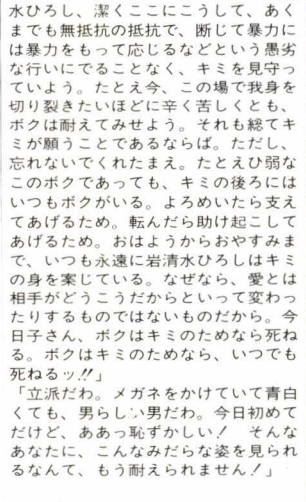 水ひろし、潔くここにこうして、あく
までも無抵抗の抵抗で、断じて暴力に
は暴力をもって応じるなどという愚劣
な行いにでることなく、キミを見守っ
ていよう。たとえ今、この場で我身を
切り裂きたいほどに辛く苦しくとも、
ボクは耐えてみせよう。それも総てキ
ミが願うことであるならば。ただし、
忘れないでくれたまえ。たとえひ弱な
このボクであっても、キミの後ろには
いつもボクがいる。よろめいたら支え
てあげるため。転んだら助け起こして
あげるため。おはようからおやすみま
で、いつも永遠に岩清水ひろしはキミ
の身を案じている。なぜなら、愛とは
相手がどうこうだからといって変わっ
たりするものではないものだから。今
日子さん、ボクはキミのためなら死ね
る。ボクはキミのためなら、いつでも
死ねるッ!!」
「立派だわ。メガネをかけていて青白
くても、男らしい男だわ。今日初めて
だけど、ああっ恥ずかしい！　そんな
あなたに、こんなみだらな姿を見られ
るなんて、もう耐えられません！」